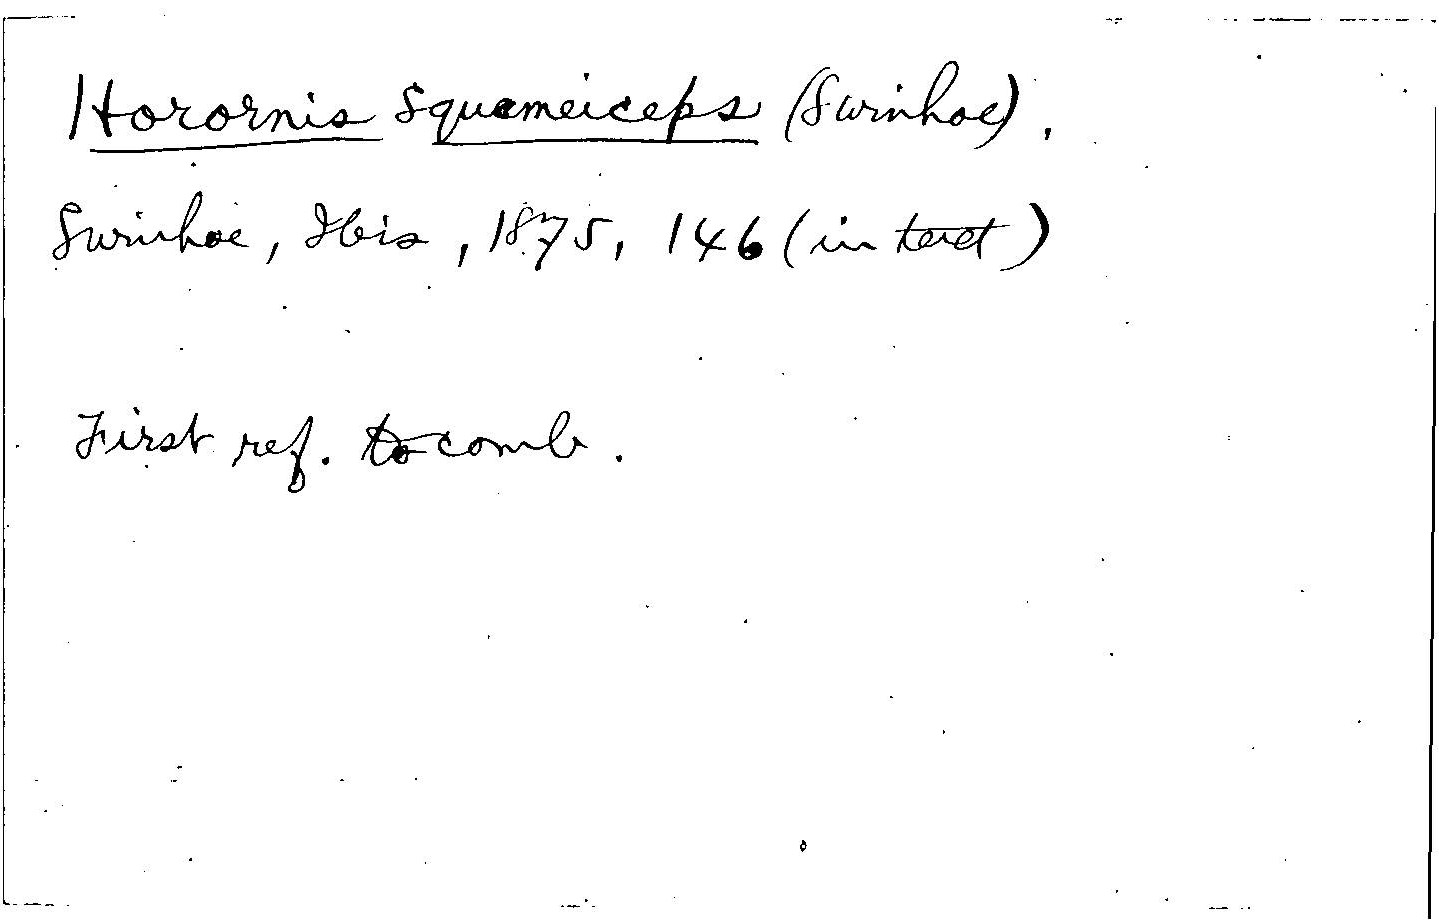 Horornis squameiceps (Swinhoe).
Swinhoe, Ibis, 1875, 146 (in text)
First ref. to comb.